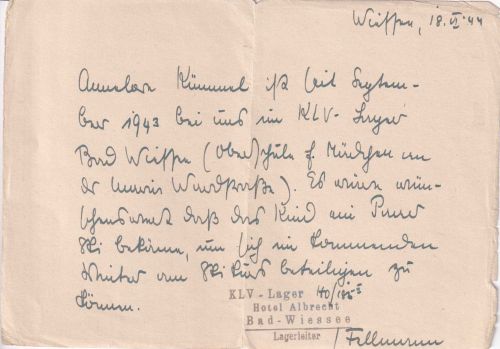 Wiessee, 18.VI.44
Annelore Kümmel ist seit Septem-
ber 1943 bei uns im KLV-Lager
Bad Wiessee (Oberschule f. Mädchen an
der Luisenstraße). Es wäre wün-
schenswert daß das Kind ein Paar
Ski bekäme, um sich im kommenden
Winter am Skikurs beteiligen zu
können.
KLV - Lager
Hotel Albrecht
Bad-Wiessee
Lagerleiter